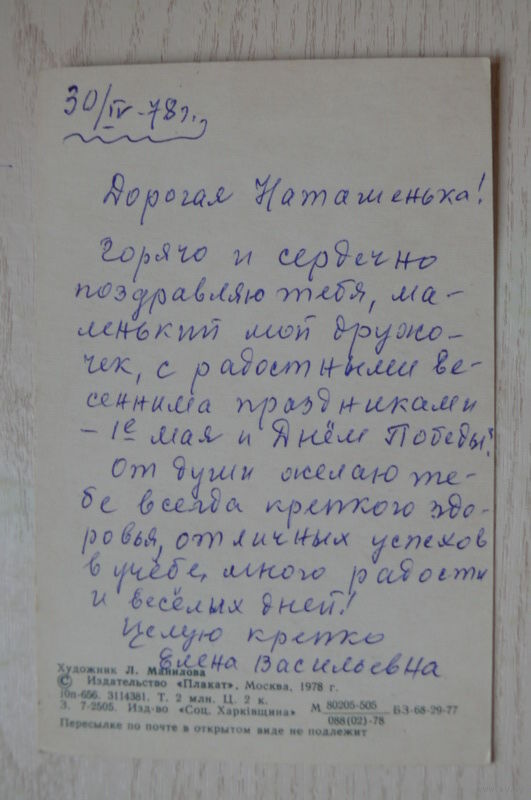 30/IV-78г.
Дорогая Наташенька!
Горячо и сердечно
поздравляю тебя, ма-
ленький мой дружо-
чек, с радостными ве-
сеннима праздниками
– 1е мая и Днём Победы!
От души желаю те-
бе всегда крепкого здо-
ровья, отличных успехов
в учёбе, много радости
и весёлых дней!
Целую крепко
Елена Васильевна
Художник Л. Манилова
© Издательство «Плакат», Москва, 1978 г.
10п-656. 3114381. Т. 2 млн. Ц. 2 к.
З. 7-2505. Изд-во «Соц. Харкiвщина» М 80205-505 БЗ-68-29-77
088(02)-78
Пересылке по почте в открытом виде не подлежит